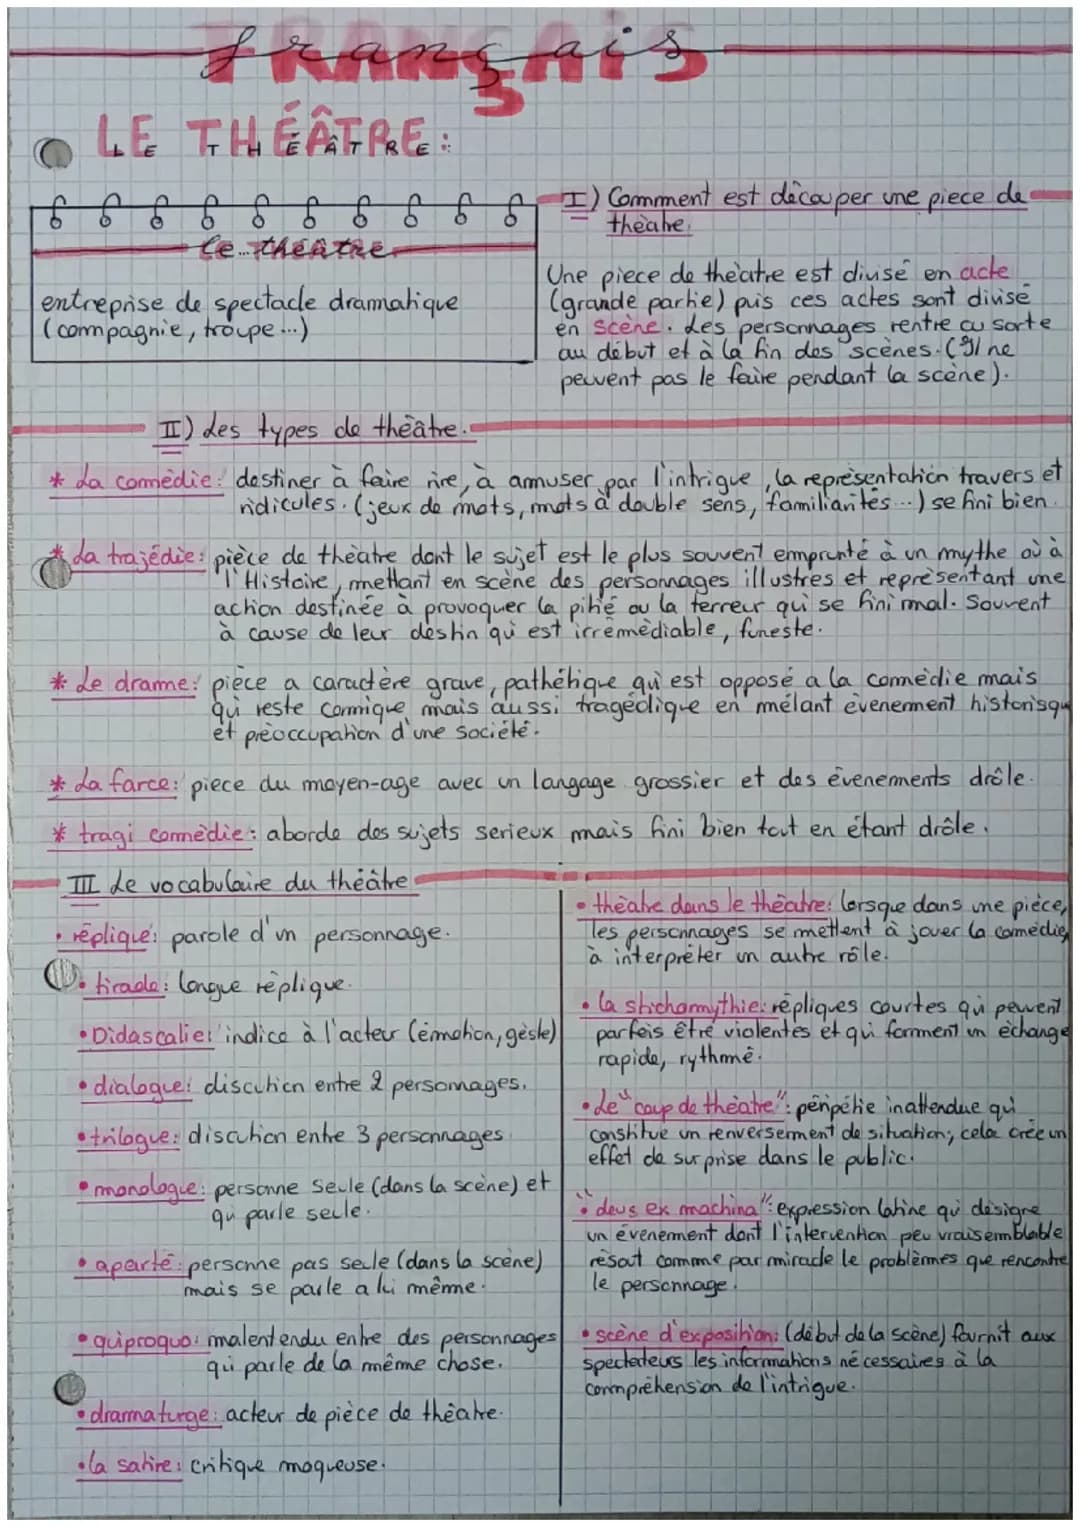 Français
LE THÉÂTRE :
le théâtre
entreprise de spectacle dramatique
(compagnie, troupe...)
I) Comment est découper une piece de
théatre.
Une piece de théatre est divisé en acte
(grande partie) puis ces actes sont divisé
en scène. Les personnages rentre ou sorte
au début et à la fin des scènes. (Il ne
peuvent pas le faire pendant la scène).
II) Les types de théâtre.
* La comédie: destiner à faire rire, à amuser par l'intrigue, la représentation travers et
ridicules. (jeux de mots, mots à double sens, familiarités...) se fini bien.
* La trajédie: pièce de théatre dont le sujet est le plus souvent emprunté à un mythe où à
l'Histoire, mettant en scène des personnages illustres et représentant une
action destinée à provoquer la pitié ou la terreur qui se fini mal. Souvent
à cause de leur destin qui est irrémédiable, funeste.
* Le drame: pièce a caractère grave, pathétique qui est opposé a la comédie mais
qui reste comique mais aussi tragédique en mélant évenement historiqu
et préoccupation d'une société.
* La farce: piece du moyen-age avec un langage grossier et des évenements drôle.
* tragi comédie: aborde des sujets serieux mais fini bien tout en étant drôle.
III Le vocabulaire du théâtre
• réplique: parole d'un personnage.
• tirade: longue réplique.
• Didascalie: indice à l'acteur (émotion, geste)
• dialogue: discution entre 2 personnages.
• trilogue: discution entre 3 personnages
• monologue: personne seule (dans la scène) et
qui parle seule.
• aparté: personne pas seule (dans la scène)
mais se parle a lui même.
• quiproquo: malentendu entre des personnages
qui parle de la même chose.
• dramaturge: acteur de pièce de théatre.
• la satire: critique moqueuse.
• théatre dans le théatre: lorsque dans une pièce,
les personnages se mettent à jouer la comédie,
à interpréter un autre rôle.
• la stichomythie: répliques courtes qui peuvent
parfois être violentes et qui forment un échange
rapide, rythmé.
• Le "coup de théatre": péripétie inattendue qui
constitue un renversement de situation; cela crée un
effet de surprise dans le public.
• "deus ex machina": expression latine qui désigne
un évenement dont l'intervention peu vraisemblable
résout comme par miracle le problèmes que rencontre
le personnage.
• scène d'exposition: (début de la scène) fournit aux
spectateurs les informations nécessaires à la
compréhension de l'intrigue.